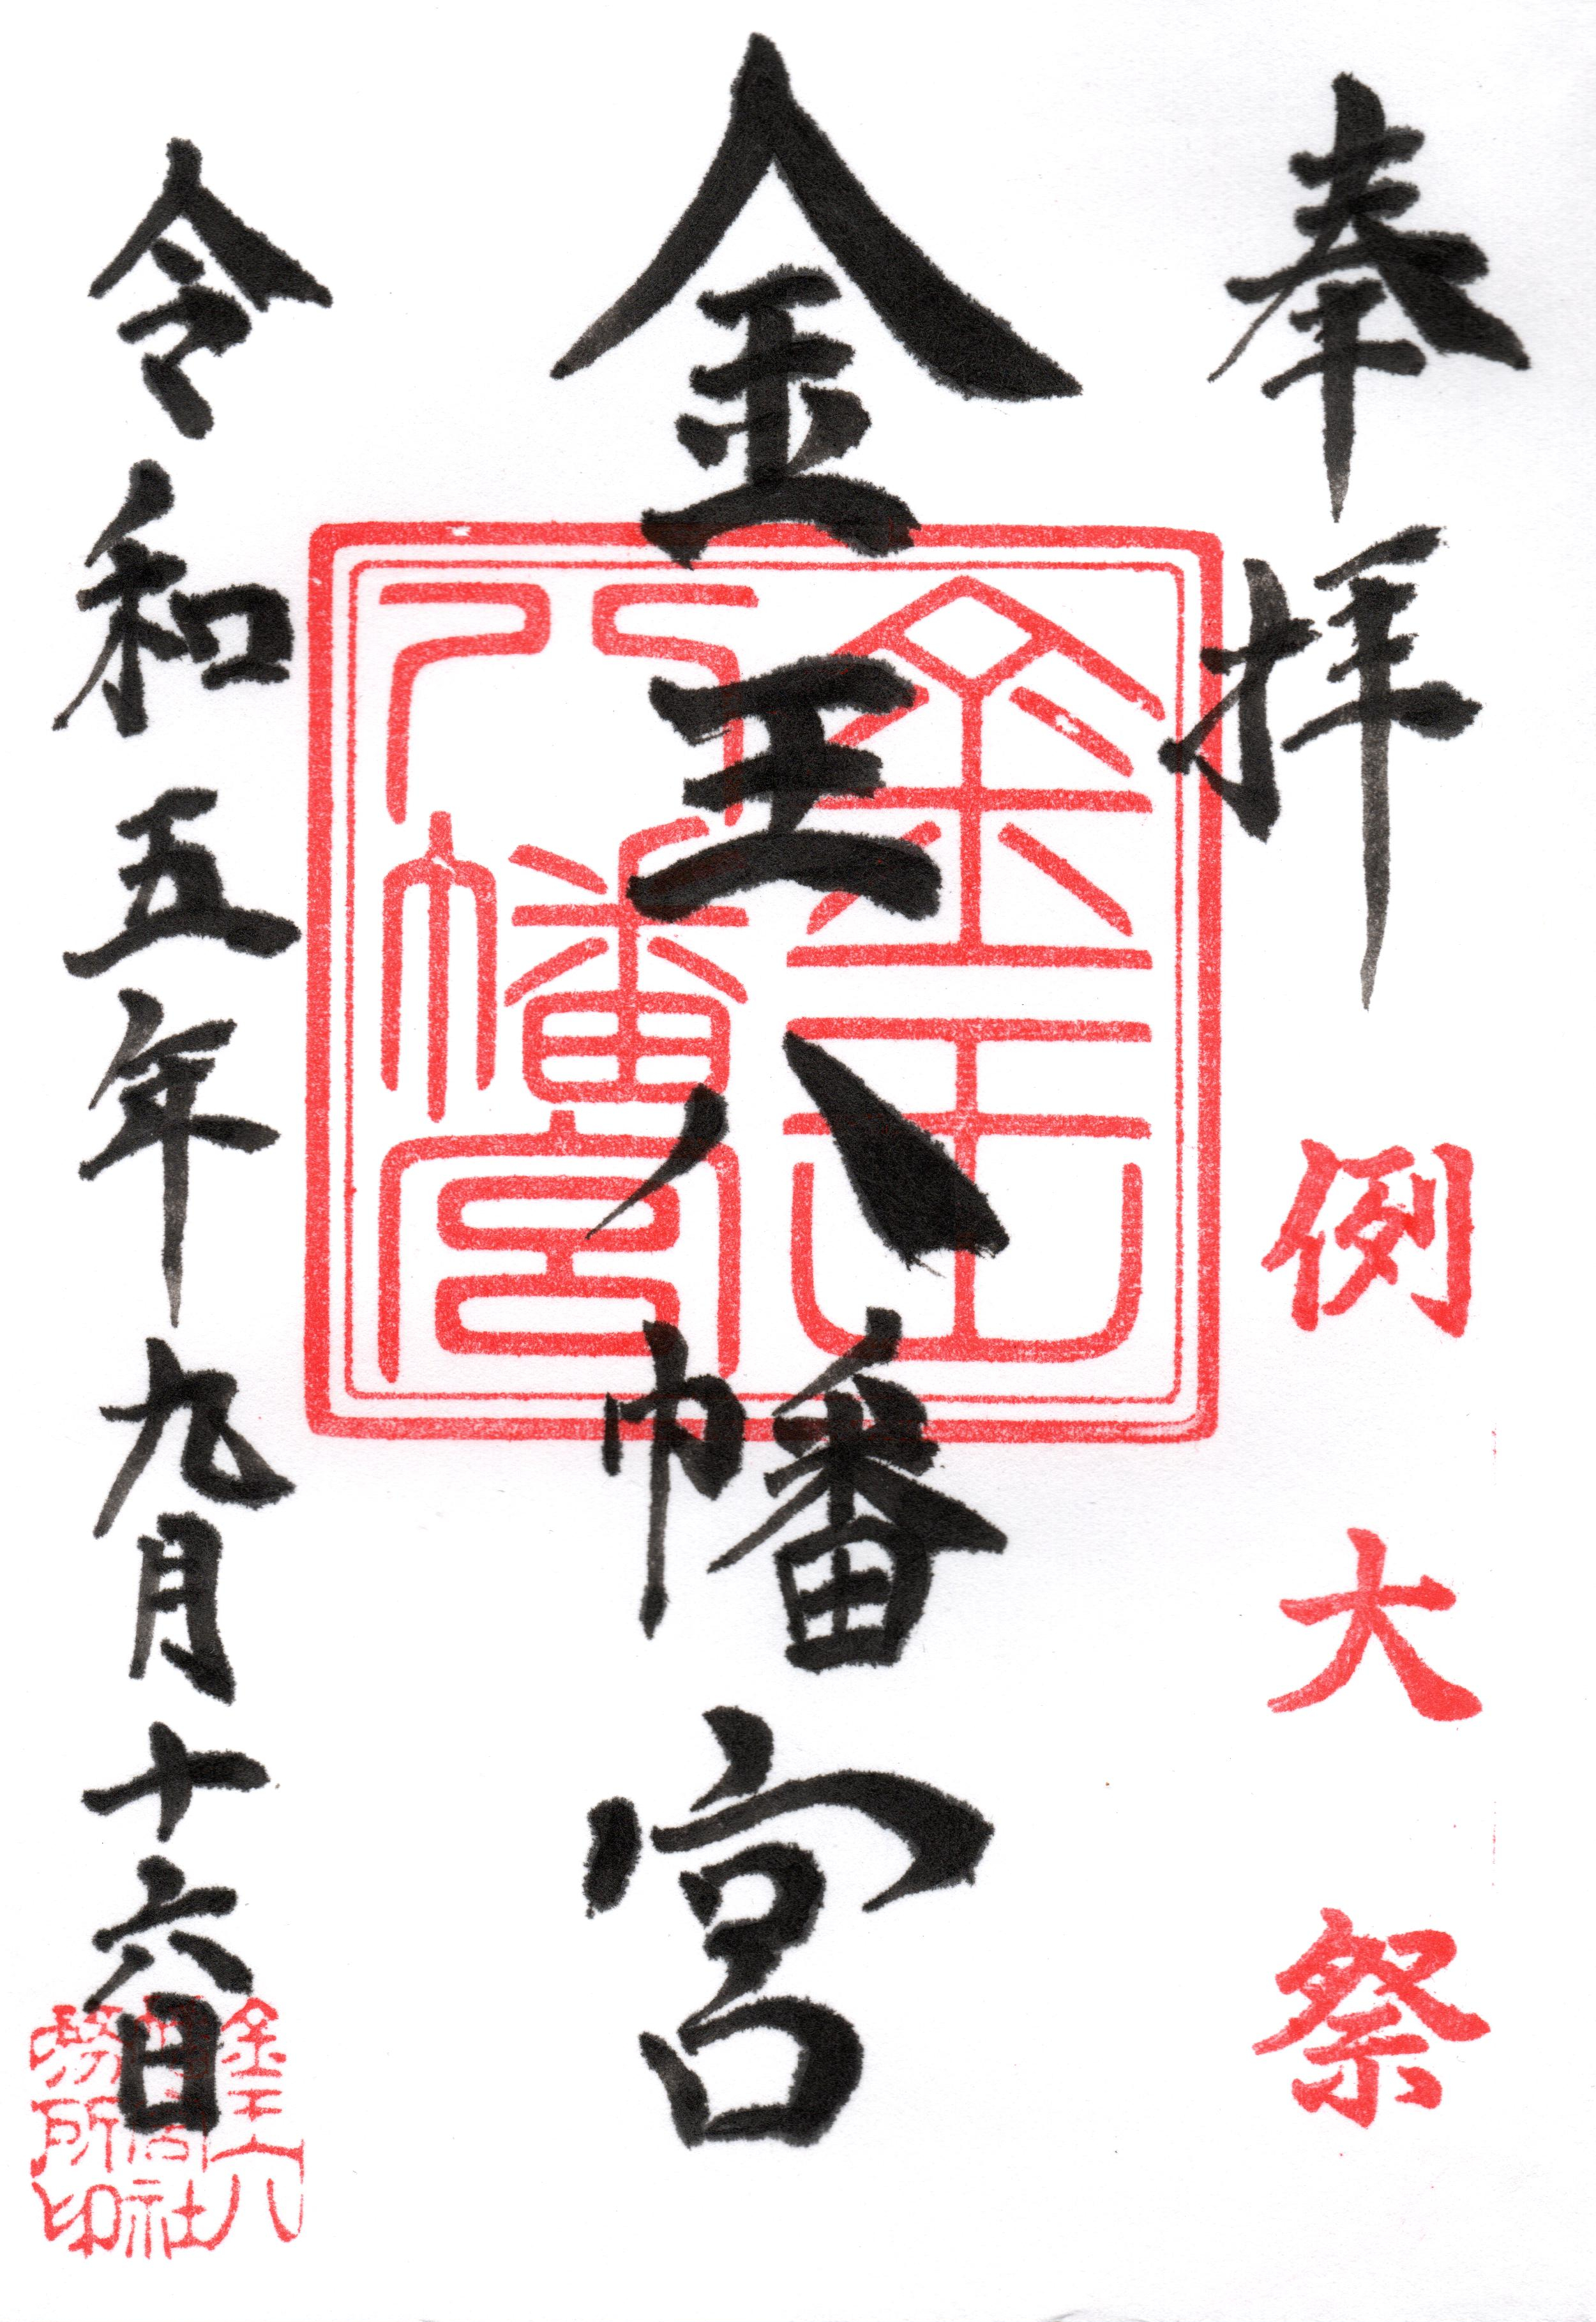 奉拝
例大祭
金王八幡宮
金王八幡宮
令和五年九月十六日
金王八幡宮社務所印